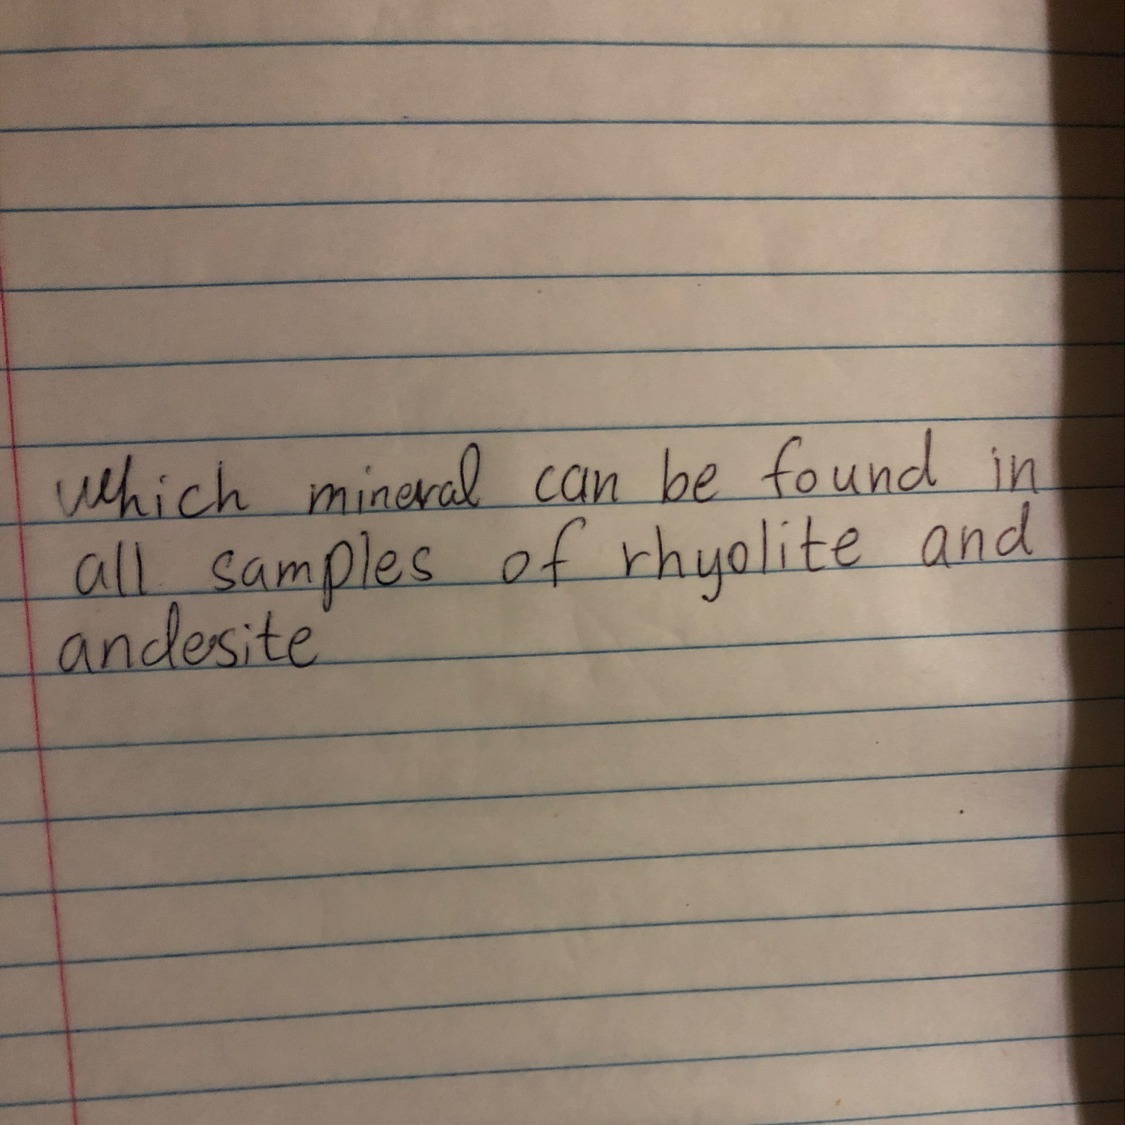 which mineral can be found in
all samples of rhyolite and
andesite